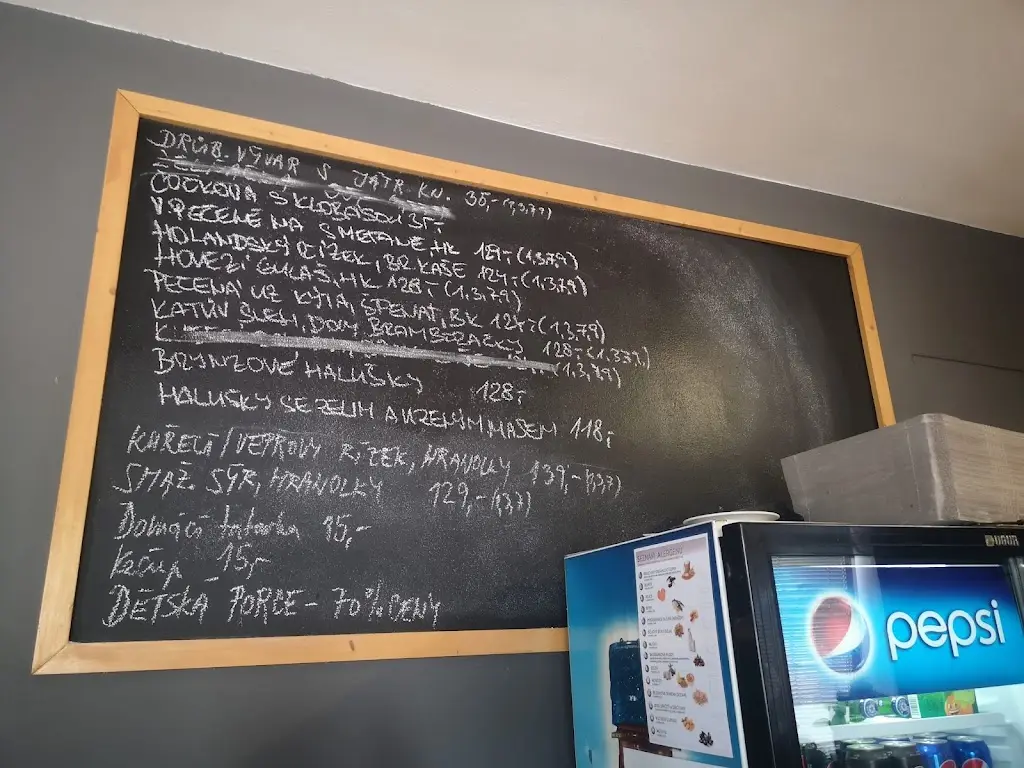 DRŮB. VÝVAR S JÁTR. KN. 35,- (1,3,7,9)
ČOČKOVÁ S KLOBÁSOU 35,-
VPEČENĚ NA SMETANĚ, HK 129,- (1,3,7,9)
HOLANDSKÝ ŘÍZEK, BR. KAŠE 124,- (1,3,7,9)
HOVĚZÍ GULÁŠ, HK 128,- (1,3,7,9)
PEČENÁ UZ. KÝTA, ŠPENÁT, BK 124,- (1,3,7,9)
KATŮV ŠLEH, DOM. BRAMBORÁČKY 128,- (1,3,7,9)
(1,3,7,9)
BRYNZOVÉ HALUŠKY 128,-
HALUŠKY SE ZELÍM A UZENÝM MASEM 118,-
KUŘECÍ/VEPŘOVÝ ŘÍZEK, HRANOLKY 139,- (1,3,7)
SMAŽ SÝR, HRANOLKY 129,- (1,3,7)
Domácí tatarka 15,-
Kečup 15,-
DĚTSKÁ PORCE - 70% CENY
SEZNAM ALERGENŮ
pepsi